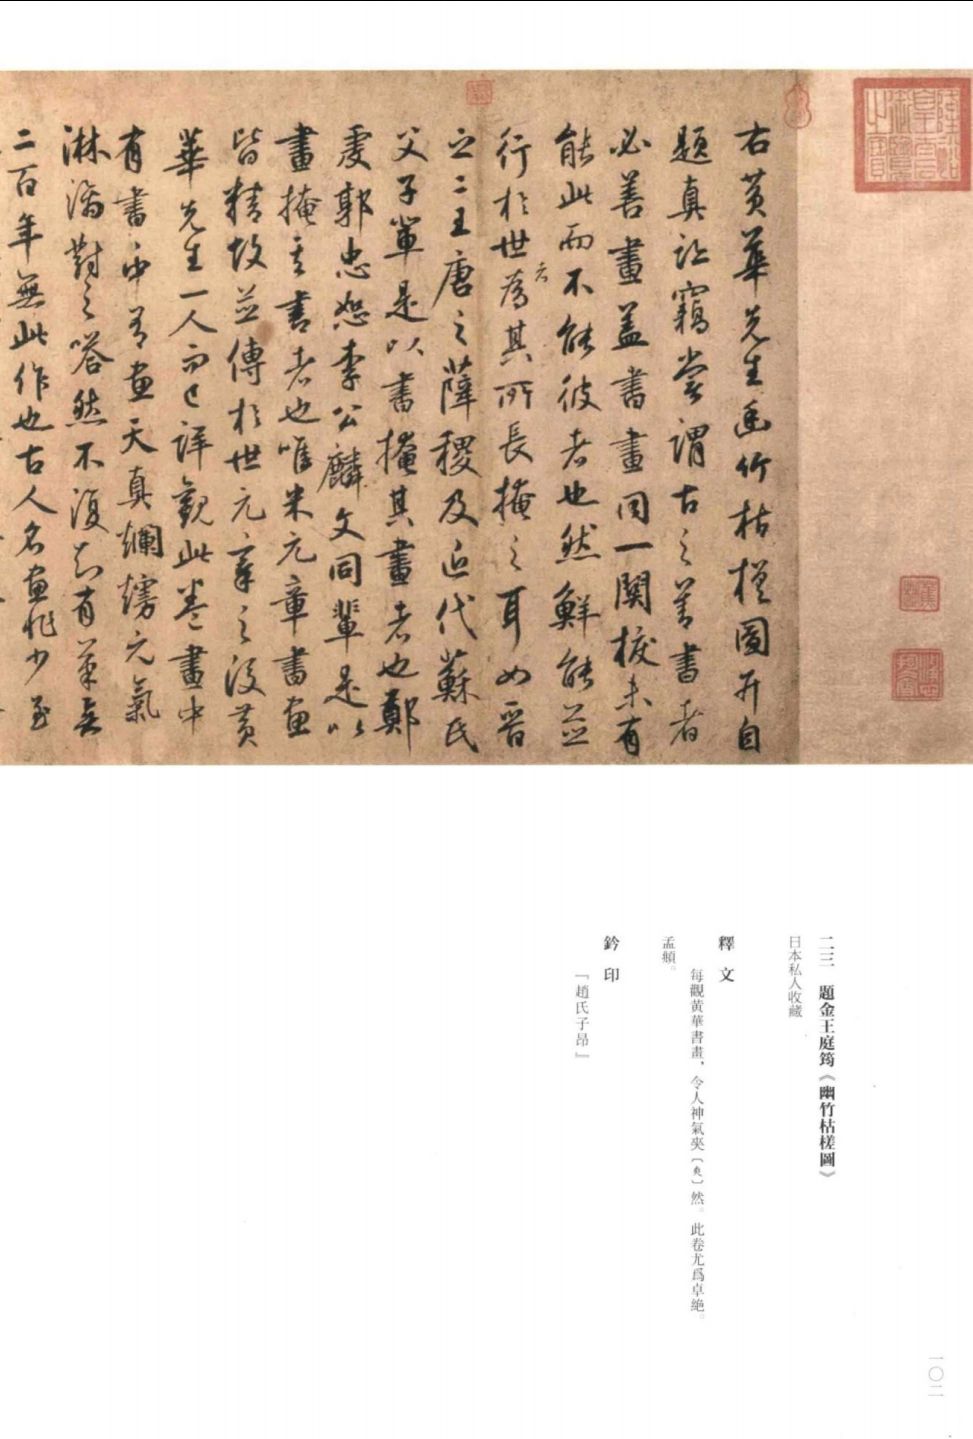 右黃華先生幽竹枯槎圖并自
題真跡竊嘗謂古之善書者
必善畫蓋書畫同一關捩未有
能此而不能彼者也然鮮能並
行於世者為其所長掩之耳如晉
之二王唐之薛稷及近代蘇氏
父子輩是以書掩其畫者也鄭
虔郭忠恕李公麟文同輩是以
畫掩其書者也唯米元章書畫
皆精故並傳於世元章之後黃
華先生一人而已詳觀此卷畫中
有書書中有畫天真爛熳元氣
淋漓對之嗒然不復知有筆矣
二百年無此作也古人名畫非少至
二三 題金王庭筠《幽竹枯槎圖》
日本私人收藏
釋文
每觀黃華書畫，令人神氣㚒〔爽〕然。此卷尤爲卓絶。
孟頫。
鈐印
『趙氏子昂』
一〇二